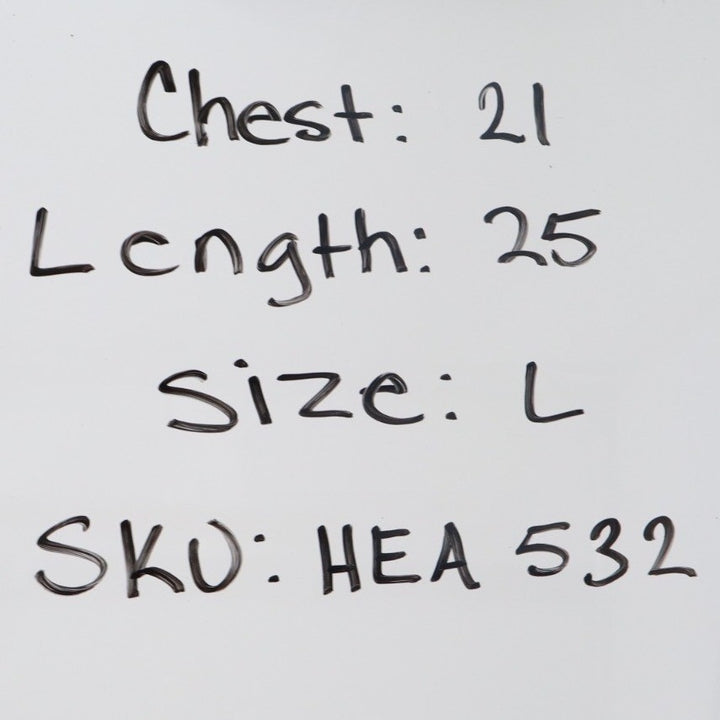 Chest: 21
Length: 25
Size: L
SKU: HEA 532